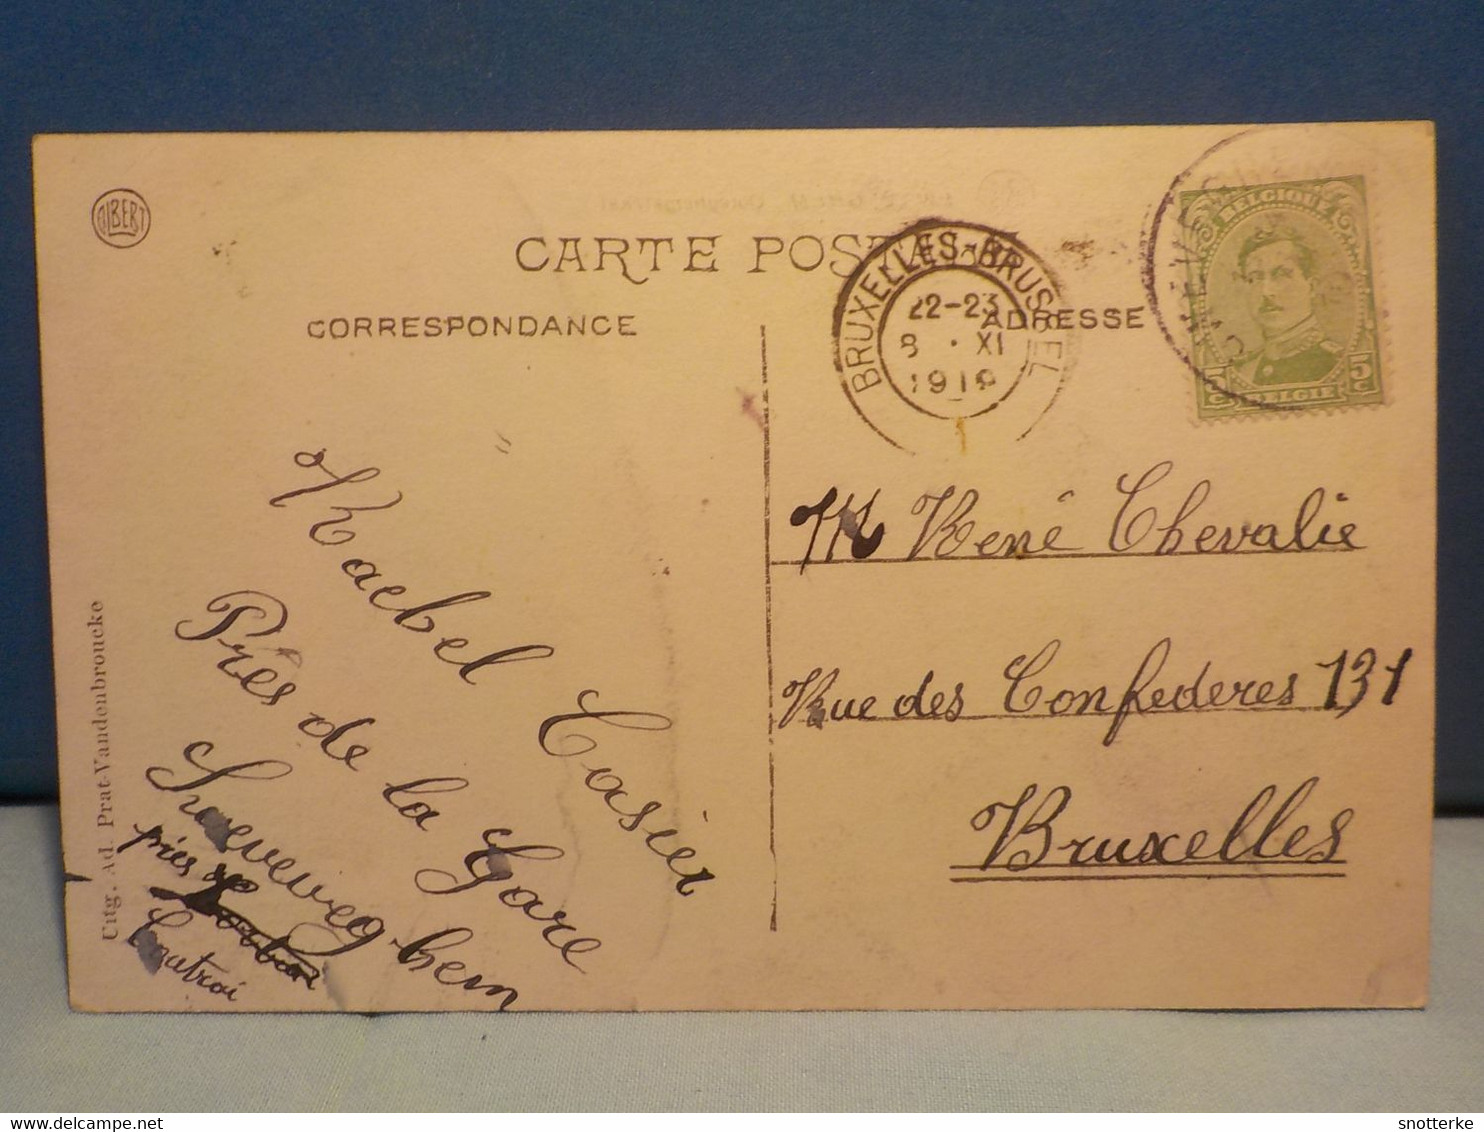 ALBERT
CARTE POSTALE
CORRESPONDANCE
ADRESSE
BRUXELLES-BRUSSEL
22-23
8 • XI
BELGIQUE
5c
5c
BELGIE
M René Chevalie
Rue des Confederes 131
Bruxelles
Rachel Casier
Près de la Gare
Sweveveghem
près de
Coutrai
Uitg. Ad. Prat-Vandenbroucke
snotterke